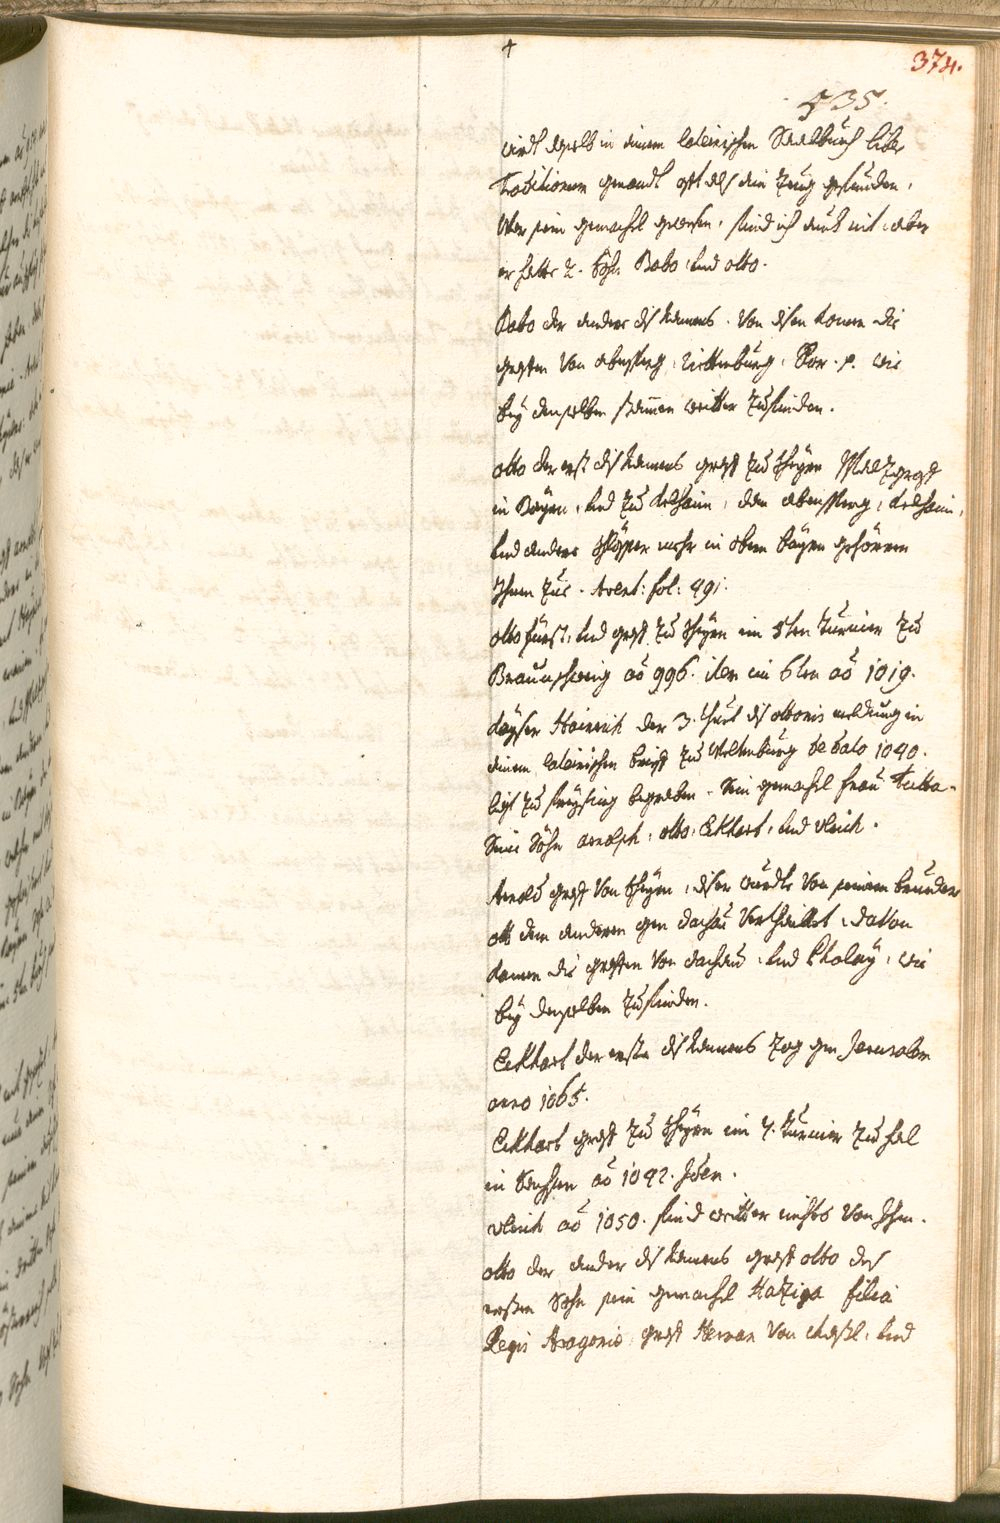 374.
535.
wirdt deselb in einem lateinischen Saalbuch liber
Traditionum genandt oft als ein Zeug gefunden,
Wer sein gemachel gwesen, find ich auch nit, aber
er hatte 2. Söhn Babo und otto.
Babo der ander ds Namens. Von disen komen die
graffen Von abensperg, Rittenburg, Ror. p. wie
bey denselben stamen weitter Zufinden.
otto der erst ds Namens graff Zu Scheyrn Pfaltzgraff
in Bayrn, und Zu Kelhaim, dem abensperg, Kelhaim,
und andere schlösser mehr in obern bayrn gehörren
Ihme Zue. Avent: fol: 491.
otto fürst, und graff Zu Scheyrn im 5ten Turnier Zu
Braunschweig ao 996. item im 6ten ao 1019.
Kayser Heinrich der 3. thuet ds ottonis meldung in
einem lateinischen brieff Zu Weltenburg de dato 1040.
ligt Zu freysing begraben. Sein gemachel frau Tutta.
Seine Söhn arnolph, otto, Ekhart, und Ulrich.
Arnold graff Von Scheyrn, diser wurdte Von seinem brueder
ott dem anderen gen dachau Vertheillet, daVon
komen die graffen Von dachau, und Phalay, wie
bey denselben Zufinden.
Eckhart der erste ds Namens Zog gen Jerusalem
anno 1065.
Eckhart graff Zu Scheyrn im 4. Turnier Zu hal
in Sachsen ao 1042.
Ulrich ao 1050. find weitter nichts Von Ihm.
otto der ander ds Namens graff otto des
ersten Sohn sein gemachel Haziga filia
Regis Aragonie, graff Herman Von Castl, und